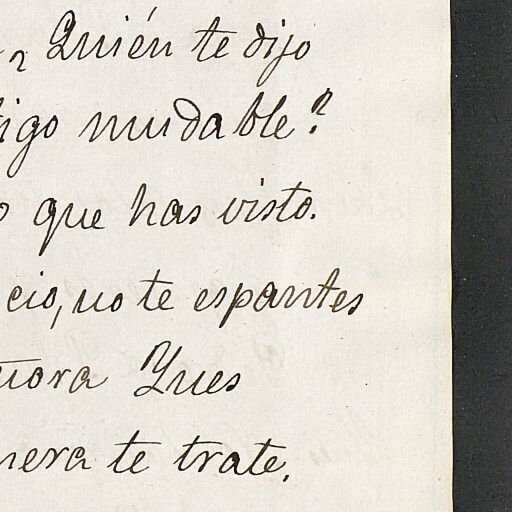 ¿Quién te dijo
igo mudable?
o que has visto.
cio, no te espantes
ñora Ynes
nera te trate.